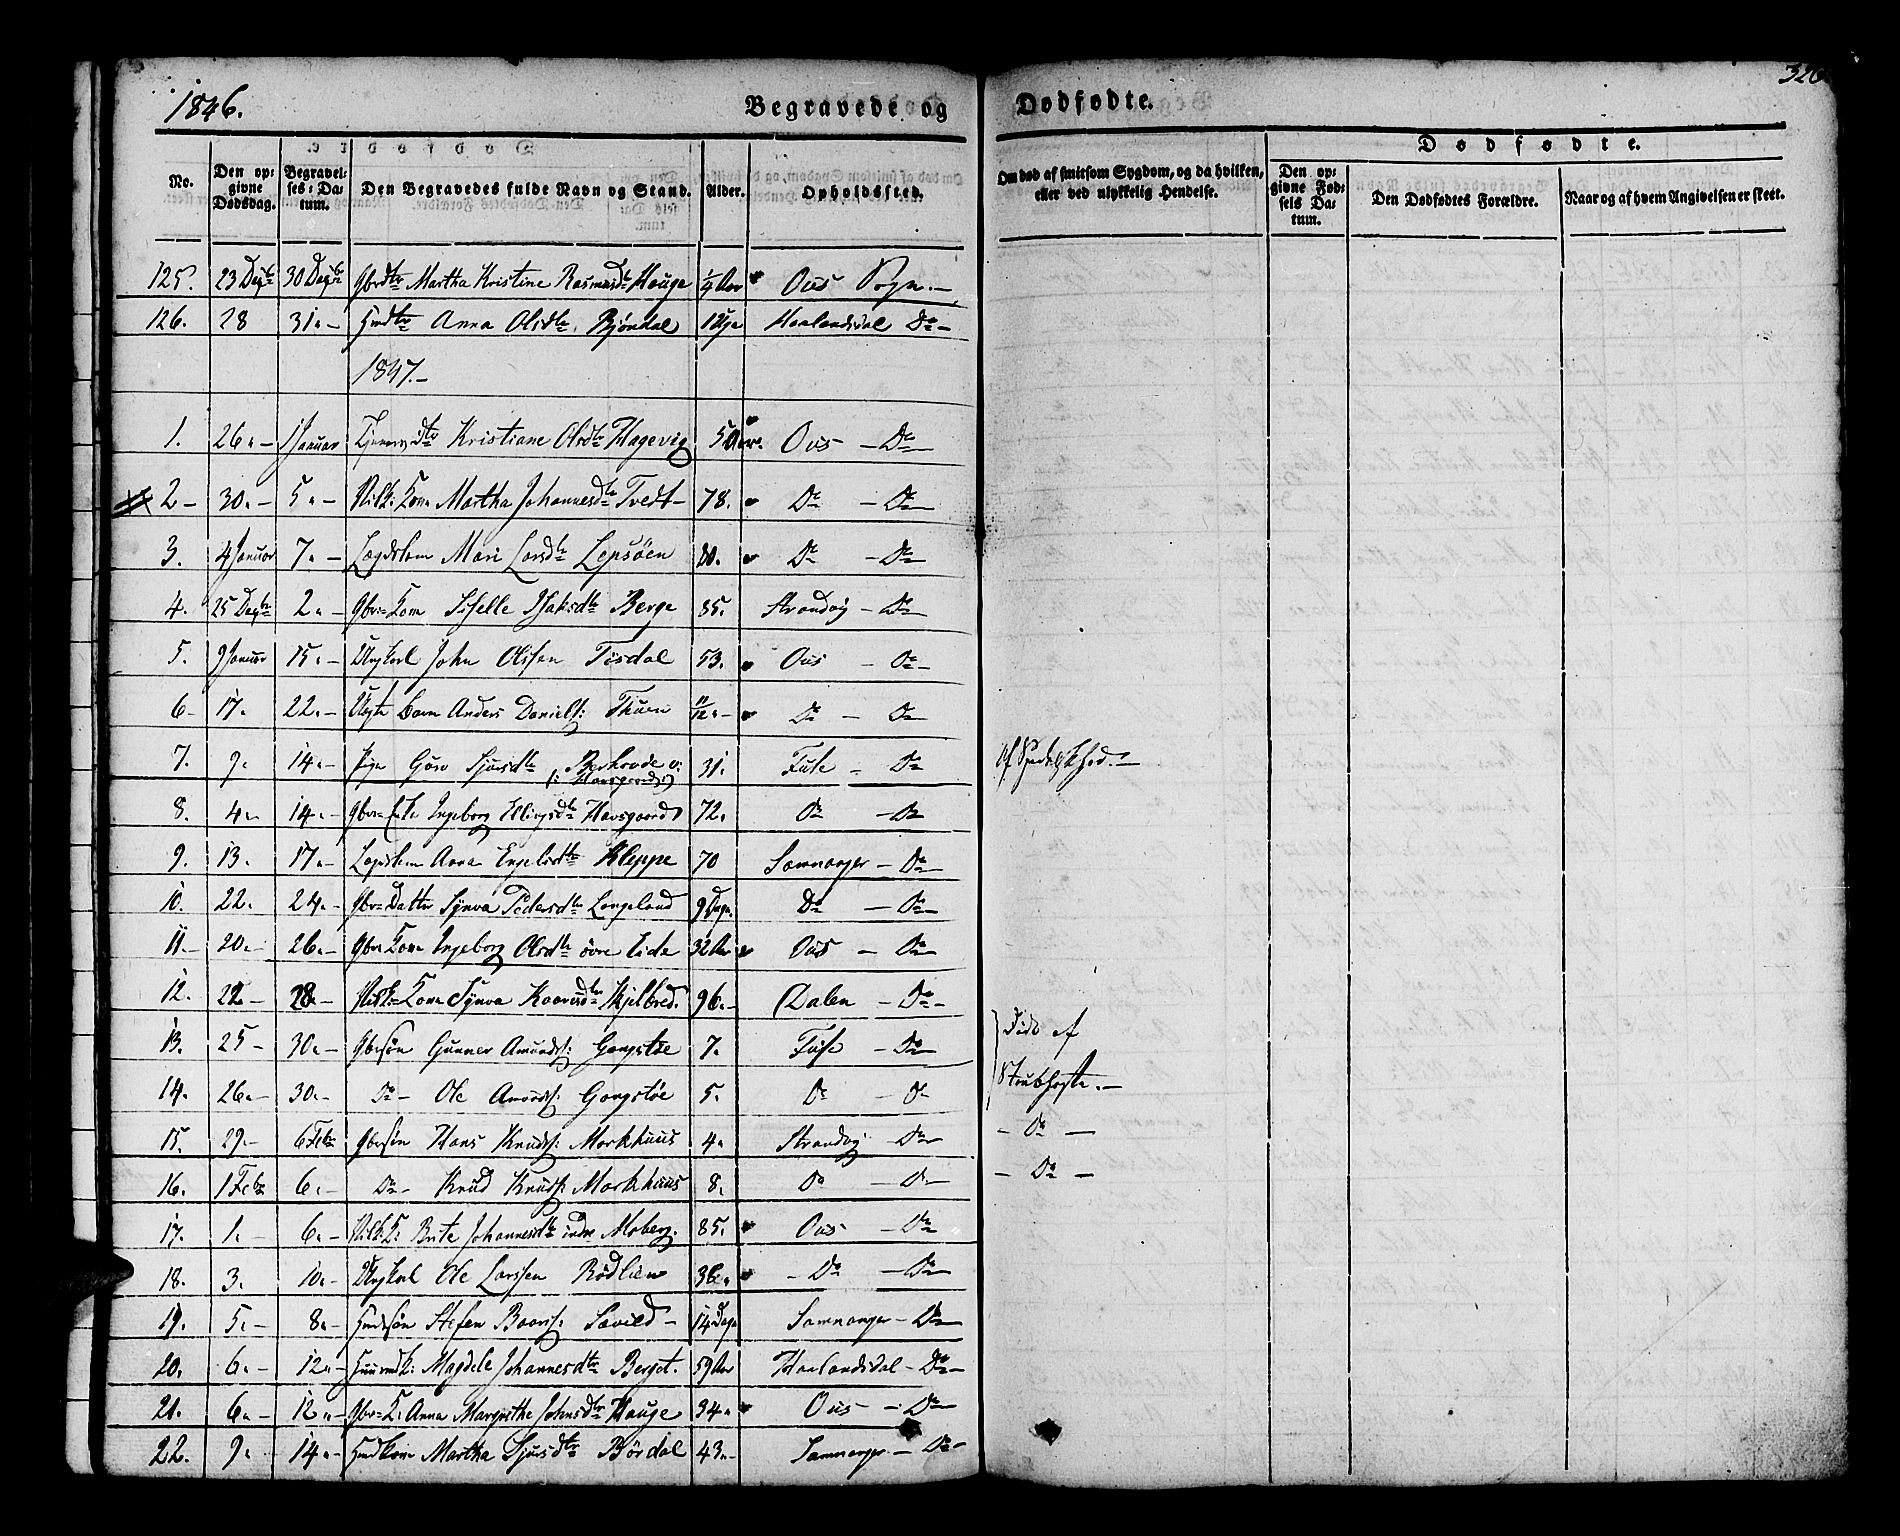 1846.
Begravede og Dødfødte.
326
Dødfødte.
No.
Den opgivne Dødsdag.
Begravelses-Datum.
Den Begravedes fulde Navn og Stand.
Alder.
Opholdssted.
Om død af smitsom Sygdom, og da hvilken, eller ved ulykkelig Hendelse.
Den opgivne Fødsels Datum.
Den Dødfødtes Forældre.
Naar og af hvem Angivelsen er skeet.
125. 23 Decbr 30 Decbr Gbrdtr Martha Kristine Rasmusdtr Hauge 1/4 Aar Ous Sogn.-
126. 28 31.- Hmdtr Anna Olsdtr Bjørndal 1 Uge Haalandsdal Do-
1847.-
1. 26.- 1 Januar Kristiane Olsdtr Hagevig 5 Aar. Ous - Do
2- 30.- 5.- Vilk: Kone Martha Johannesdtr Tvedt- 78. Do - Do
3. 4 Januar 7.- Lægdslem Mari Larsdtr Lepsøen 80. Do - Do
4. 25 Decbr 2.- Gbr- Kone Sisselle Isaksdtr Berge 85. Strandvig - Do
5. 9 Januar 15.- Ungkarl John Olssen Tøsdal 53. Ous - Do-
6- 17. 22.- Barn Anders Daniels: Thuen 11/12.- Do - Do
7. 9. 14.- Pige Guro Sjursdtr Berhovde v: (: Havsgaard:) 31. Fuse - Do Af Spedalskhed.-
8. 4.- 14.- Gbr- Enke Ingeborg Ellingsdtr Havsgaard 72. Do - Do
9. 13. 17.- Lægdslem Anna Engelsdtr Kleppe 70 Samnanger - Do
10. 22. 24.- Gbr- Datter Synva Pedersdtr Langeland 9 Dage. Do - Do-
11.- 20.- 26.- Gbr- Kone Ingeborg Olsdtr øvre Eide 32 Aar Ous - Do
12. 22- 28- Vilk- Kone Synva Kaaresdtr Skjelbred. 96.- Dalen - Do-
13. 25- 30.- Gbrsøn Gunner Amunds: Gangstøe 7. Fuse - Do Døde af
14. 26.- 30.- Do- Ole Amunds: Gangstøe 5. Do - Do Strubhoste.-
15. 29.- 6 Febr Gbrsøn Hans Knuds: Markhuus 4. Strandvig - Do - Do -
16. 1 Febr 6.- Do- Knud Knuds: Markhuus 8. Do - Do - Do -
17. 1. 6.- Vilk: K: Brite Johannesdtr indre Moberg. 85. Ous - Do
18. 3. 10.- Ungkarl Ole Larssen Rødlien 36. - Do - Do
19. 5.- 8.- Hmdsøn Stefen Baars: Søvild - 14 Dage Samnanger - Do
20. 6.- 12.- Magdele Johannesdtr Berget. 59 Aar Haalandsdal - Do-
21. 6.- 12.- Gbr- K: Anna Margrethe Johnsdtr Hauge 34. Ous - Do
22. 9. 14.- Hmdkone Martha Sjursdtr Børdal 43.- Samnanger - Do-